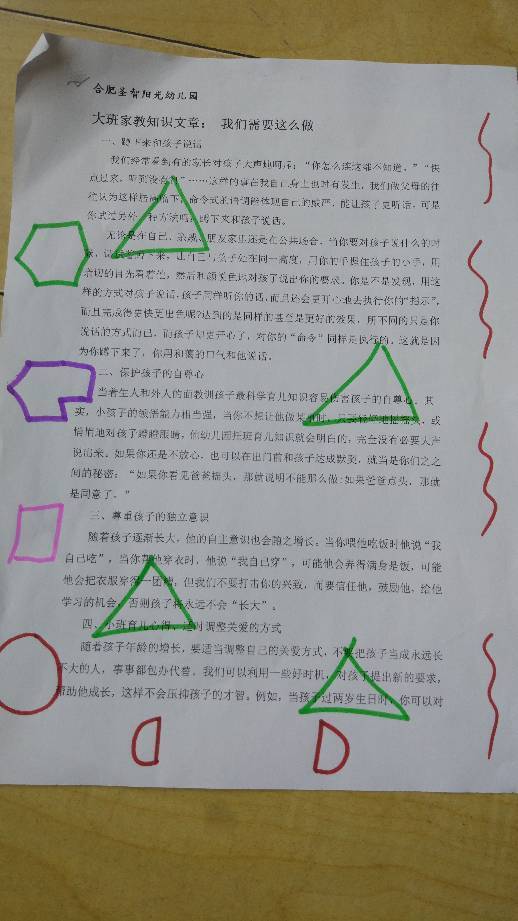 合肥圣智阳光幼儿园
大班家教知识文章： 我们需要这么做
一、蹲下来和孩子说话
我们经常看到有的家长对孩子大声地呵斥：“你怎么连这都不知道。”“快
点过来，听到没有！”……这样的事在我自己身上也时有发生。我们做父母的往
往认为这样居高临下、命令式的语调能体现自己的威严，能让孩子更听话，可是
你试过另外一种方法吗？蹲下来和孩子说话。
无论是在自己、亲戚、朋友家里还是在公共场合，当你要对孩子说什么的时
候，请你蹲下来，让自己与孩子处在同一高度，用你的手握住孩子的小手，用
亲切的目光看着他，然后和颜悦色地对孩子说出你的要求。你是不是发现，用这
样的方式对孩子说话，孩子同样听你的话，而且还会更开心地去执行你的“指示”，
而且完成得更快更出色呢？达到的是同样的甚至是更好的效果，所不同的只是你
说话的方式而已，而孩子却更开心了，对你的“命令”同样是执行的。这就是因
为你蹲下来了，你用和蔼的口气和他说话。
二、保护孩子的自尊心
当着生人和外人的面教训孩子最科学育儿知识容易伤害孩子的自尊心。其
实，小孩子的领悟能力相当强，当你不想让他做某事时，只要轻轻地摇摇头，或
悄悄地对孩子眨眨眼睛，他幼儿园托班育儿知识就会明白的，完全没有必要大声
说出来。如果你还是不放心，也可以在出门前和孩子达成默契，就当是你们之
间的秘密：“如果你看见爸爸摇头，那就说明不能那么做；如果爸爸点头，那就
是同意了。”
三、尊重孩子的独立意识
随着孩子逐渐长大，他的自主意识也会随之增长。当你喂他吃饭时他说“我
自己吃”，当你帮他穿衣时，他说“我自己穿”，可能他会弄得满身是饭，可能
他会把衣服穿得一团糟，但我们不要打击你的兴致，而要信任他，鼓励他，给他
学习的机会，否则孩子将永远不会“长大”。
四、小班育儿心得、适时调整关爱的方式
随着孩子年龄的增长，要适当调整自己的关爱方式，不要把孩子当成永远长
不大的人，事事都包办代替。我们可以利用一些好时机，对孩子提出新的要求，
帮助他成长，这样不会压抑孩子的才智。例如，当孩子过两岁生日时，你可以对